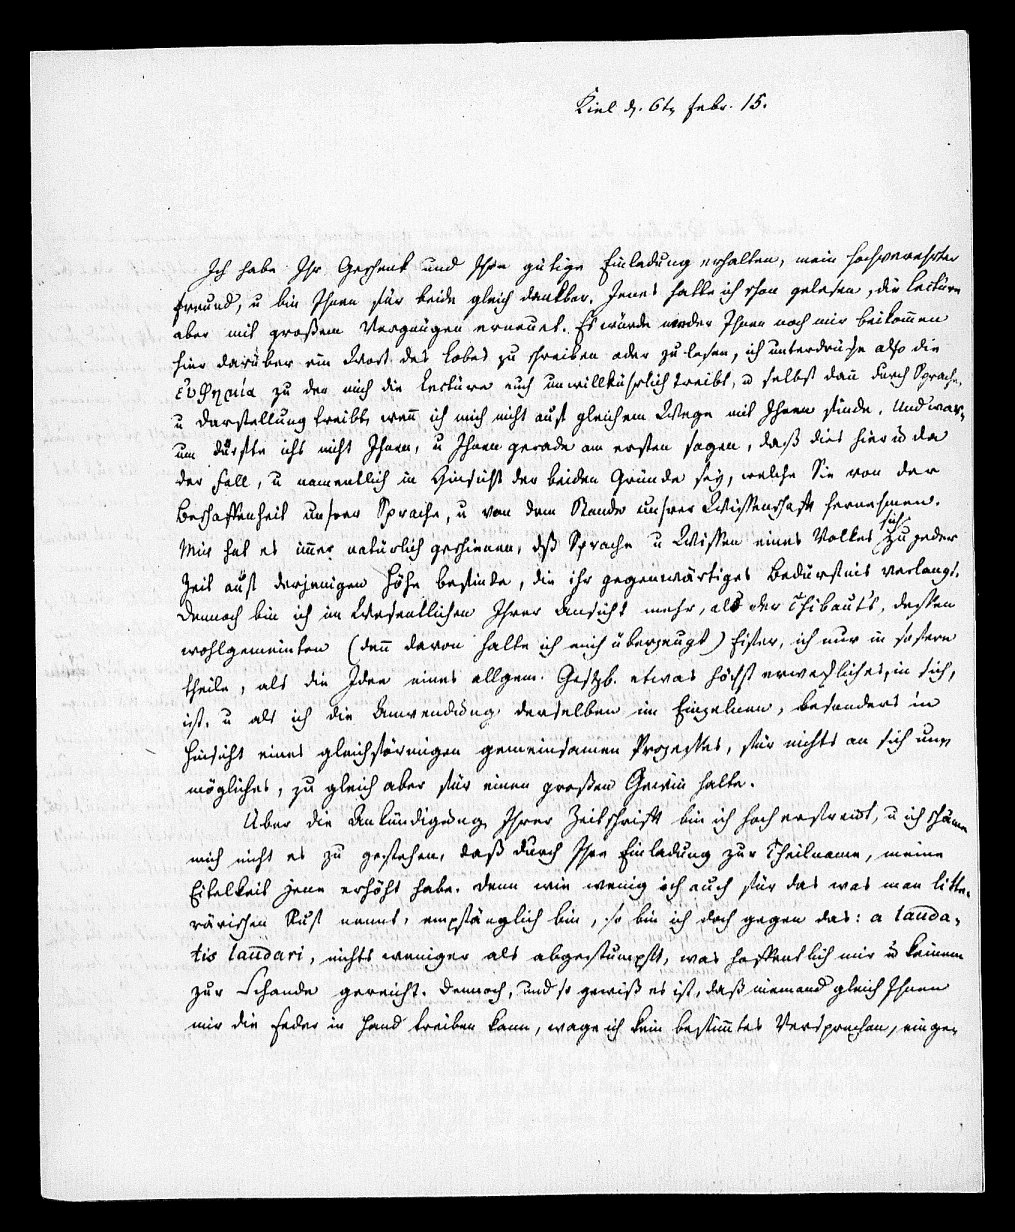 Kiel d. 6t Febr. 15.
Ich habe Ihr Geschenk und Ihre gütige Einladung erhalten, mein hochverehrter
Freund, u bin Ihnen für beide gleich dankbar. Jenes hatte ich schon gelesen, die Lectüre
aber mit großem Vergnügen erneuet. Es würde weder Ihnen noch mir beikom̄en
hier darüber ein Wort des Lobes zu schreiben oder zu lesen, ich unterdrücke also die
εὐφημία zu der mich die Lectüre auch unwillkührlich treibt, u selbst dan̄ durch Sprache
u Darstellung treibt, wen̄ ich mich nicht auf gleichem Wege mit Ihnen finde. Und war-
um dürfte ichs nicht Ihnen, u Ihnen gerade am ersten sagen, daß dies hier u da
der Fall, u namentlich in Hinsicht der beiden Gründe sey, welche Sie von der
Beschaffenheit unsrer Sprache, u von dem Stande unsrer Wissenschaft hernehmen.
Mir hat es im̄er natürlich geschienen, dß Sprache u Wissen eines Volkes sich zu jeder
Zeit auf derjenigen Höhe befinde, die ihr gegenwärtiges Bedürfnis verlangt.
Dennoch bin ich im Wesentlichen Ihrer Ansicht mehr, als der Thibauts, dessen
wohlgemeinten (den̄ davon halte ich mich überzeugt) Eifer, ich nur in sofern
theile, als die Idee eines allgem. Gesetzb. etwas höchst erweckliches, in sich,
ist, u als ich die Anwendung derselben im Einzelnen, besonders in
Hinsicht eines gleichförmigen gemeinsamen Processes, für nichts an sich un-
mögliches, zu gleich aber für einen großen Gewin̄ halte.
Über die Ankündigung Ihrer Zeitschrift bin ich hoch erfreut, u ich schäme
mich nicht es zu gestehen, daß durch Ihre Einladung zur Theilname, meine
Eitelkeit jene erhöht habe. Denn wie wenig ich auch für das was man litte-
rärischen Ruf nennt, empfänglich bin, so bin ich doch gegen das: a lauda-
tis laudari, nichts weniger als abgestumpft, was hoffentlich mir u keinem
zur Schande gereicht. Dennoch, und so gewiß es ist, daß niemand gleich Ihnen
mir die Feder in Hand treiben kann, wage ich kein bestim̄tes Versprechen, einge-